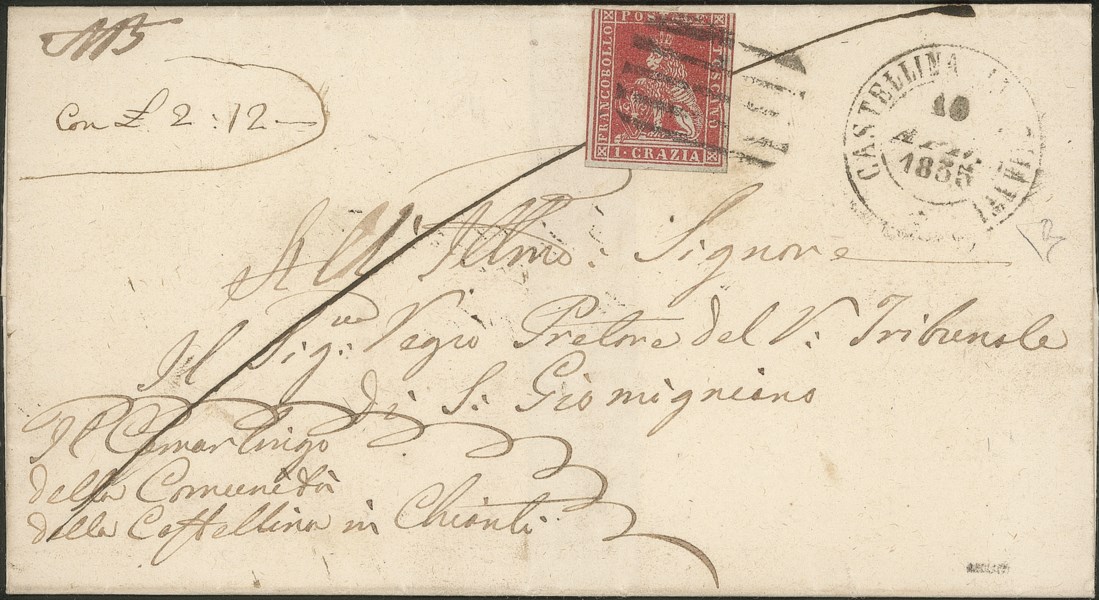 Con £ 2:12
FRANCOBOLLO POSTALE TOSCANO
1·CRAZIA
CASTELLINA IN CHIANTI
1855
All' Illmo: Signore
Il Sig:re Regio Pretore del R: Tribunale
di S: Gio mignano
Il Camarlingo
della Comunità
della Castellina in Chianti